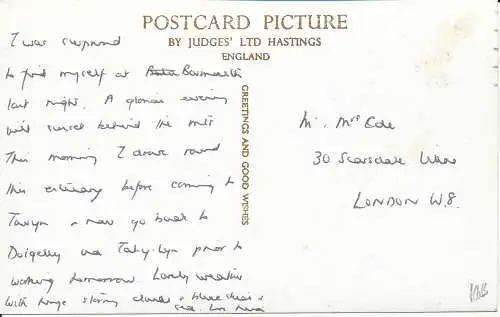 POSTCARD PICTURE
BY JUDGES' LTD HASTINGS
ENGLAND
GREETINGS AND GOOD WISHES
I was surprised
to find myself at Barmouth
last night. A glorious evening
with sunset behind the mts
This morning I drove round
this estuary before coming to
Towyn & now go back to
Dolgelly via Taly-Lyn prior to
working tomorrow. Lovely weather
with huge stormy clouds & blue skies &
sea.
Mr. Mrs Cole
30 Scarsdale Villas
LONDON W.8.